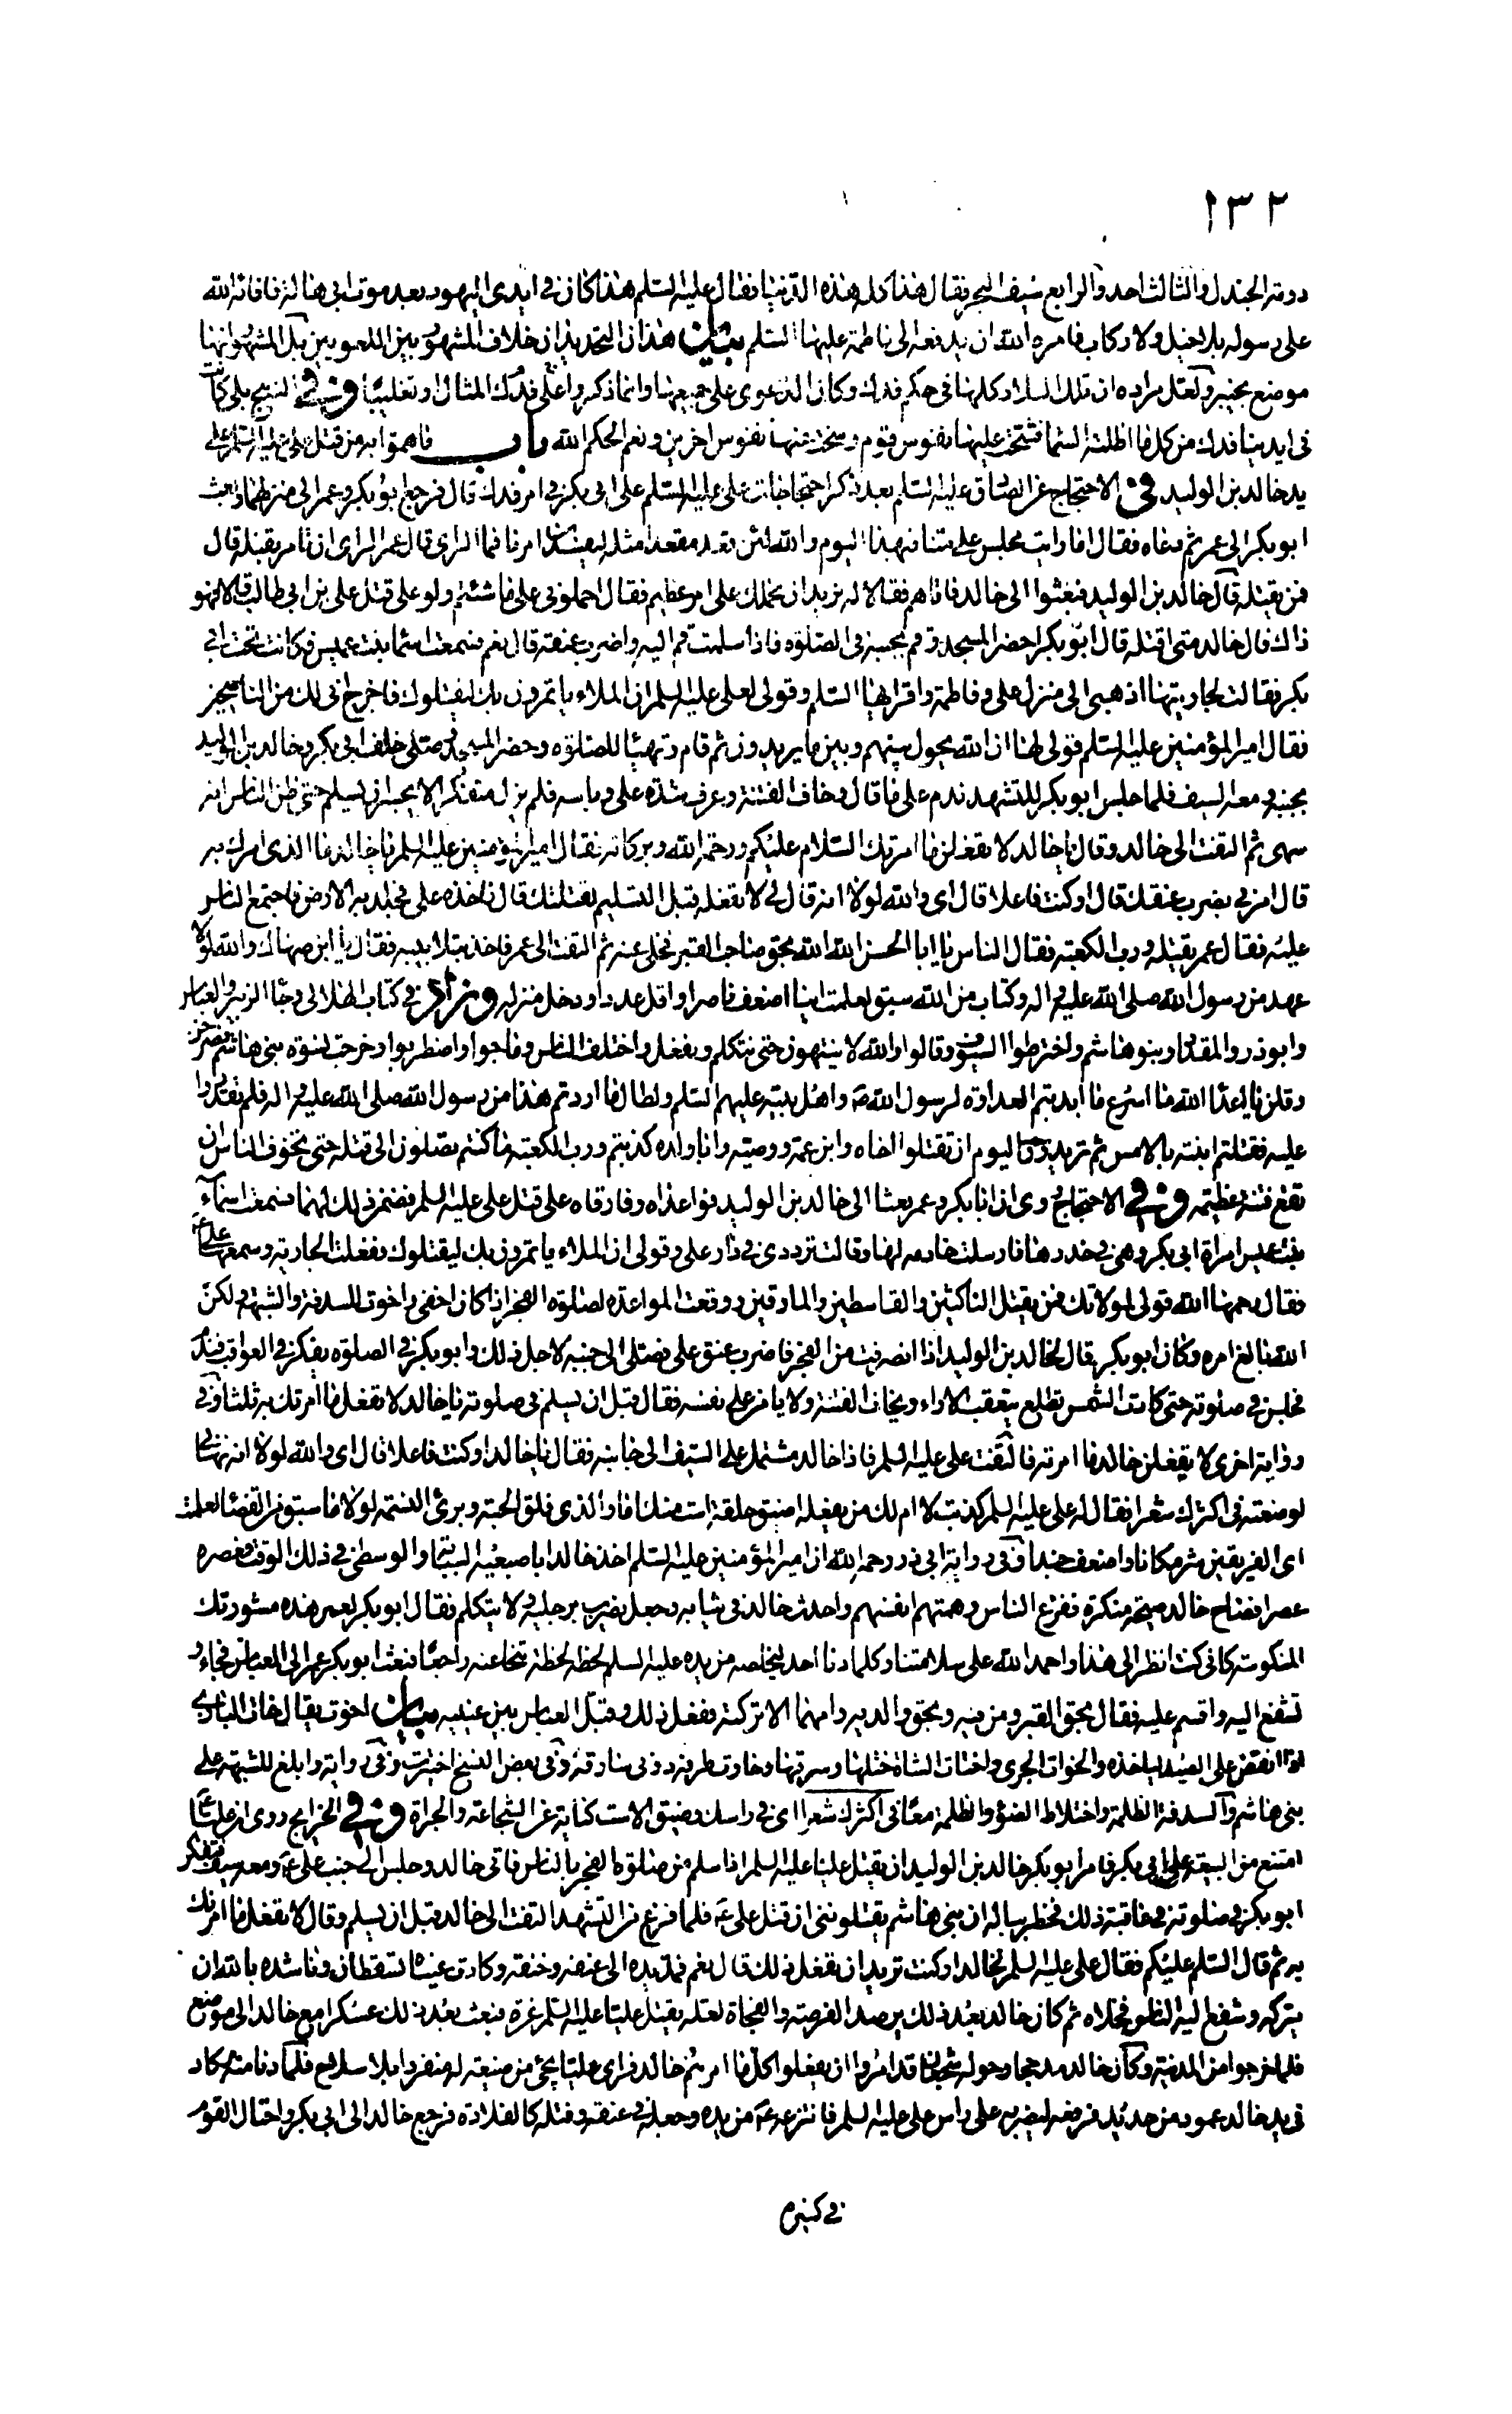 ١٣٢
دومة الجندل والثالث احد والرابع سيف البحر فقال هذا كله هذه الدنيا فقال عليه السلم هذا كان في ايدى اليهود بعد موت ابى هالة فافائه الله
على رسوله بلا خيل ولا ركاب فامره الله ان يدفعه الى فاطمة عليها السلم بيان هذان التحديدان خلاف المشهور بين اللغويين بل المشهور انها
موضع بخيبر ولعل مراده ان تلك البلاد كلها في حكم فدك وكان الدعوى على جميعها وانما ذكروا على فدك المثال او تغليبًا وفي النهج بلى كانت
فى ايدينا فدك من كل ما اظلته السما فشحت عليها نفوس قوم وسخت عنها نفوس اخرين ونعم الحكم الله باب فاهموا به من قتل على عليه السلم على
يد خالد بن الوليد في الاحتجاج عن الصادق عليه السلم بعد ذكر احتجاجات على عليه السلم على ابى بكر في امر فدك قال فرجع ابو بكر وعمر الى منزلهما وبعث
ابو بكر الى عمر ثم دعاه فقال اما رايت مجلس على منا في هذا اليوم والله لئن قعد مقعدا مثله ليفسدن امرنا فما الراى قال عمر الراى ان نامر بقتله قال
فمن يقتله قال خالد بن الوليد فبعثوا الى خالد فاتاهم فقالا له نريد ان نحملك على امر عظيم فقال احملونى على ما شئتم ولو على قتل على بن ابى طالب قالا فهو
ذاك قال خالد متى اقتله قال ابو بكر احضر المسجد وقم بجنبه في الصلوة فاذا سلمت قم اليه واضرب عنقه قال نعم فسمعت اسما بنت عميس وكانت تحت ابى
بكر فقالت لجاريتها اذهبى الى منزل على وفاطمة واقرايهما السلم وقولى لعلى عليه السلم ان الملاء ياتمرون بك ليقتلوك فاخرج انى لك من الناصحين
فقال امير المؤمنين عليه السلم قولى لها ان الله يحول بينهم وبين ما يريدون ثم قام وتهيئا للصلوة وحضر المسجد وصلى خلف ابى بكر وخالد بن الوليد
بجنبه ومعه السيف فلما جلس ابو بكر للتشهد ندم على ما قال وخاف الفتنة وعرف شدة على وباسه فلم يزل متفكرا لا يجسر ان يسلم حتى ظن الناس انه
سهى ثم التفت الى خالد وقال يا خالد لا تفعلن ما امرتك السلام عليكم ورحمة الله وبركاته فقال امير المؤمنين عليه السلم يا خالد ما الذى امرك به
قال امرنى بضرب عنقك قال او كنت فاعلا قال اى والله لولا انه قال لى لا تفعله قبل التسليم لقتلتك قال فاخذه على فجلد به الارض فاجتمع الناس
عليه فقال عمر يقتله ورب الكعبة فقال الناس يا ابا الحسن الله الله بحق صاحب القبر فخلى عنه ثم التفت الى عمر فاخذ بتلابيبه فقال يا ابن صهاك والله لولا
عهد من رسول الله صلى الله عليه واله وكتاب من الله سبق لعلمت اينا اضعف ناصرا واقل عددا ودخل منزله وزاد في كتاب الهلالى وجاء الزبير والعباس
وابو ذر والمقداد وبنو هاشم واخترطوا السيوف وقالوا والله لا ينتهون حتى يتكلم ويفعل واختلف الناس وماجوا واضطربوا وخرجت نسوة بنى هاشم فصرخن
وقلن يا اعداء الله ما اسرع ما ابديتم العداوة لرسول الله ص واهل بيته عليهم السلم ولطال ما اردتم هذا من رسول الله صلى الله عليه واله فلم تقدروا
عليه فقتلتم ابنته بالامس ثم تريدون اليوم ان تقتلوا اخاه وابن عمه ووصيه وابا ولده كذبتم ورب الكعبة ما كنتم تصلون الى قتله حتى تخوف الناس ان
تقع فتنة عظيمة وفي الاحتجاج روى ان ابا بكر وعمر بعثا الى خالد بن الوليد فواعداه وفارقاه على قتل على عليه السلم فضمن ذلك لهما فسمعت اسماء
بنت عميس امراة ابى بكر وهى في خدرها فارسلت خادمه لها وقالت ترددى في دار على وقولى ان الملاء ياتمرون بك ليقتلوك ففعلت الجارية وسمعها على ع
فقال رحمها الله قولى لمولاتك فمن يقتل الناكثين والقاسطين والمارقين ووقعت المواعدة لصلوة الفجر اذ كان اخفى واخوت للسدفة والشبهة ولكن
الله بالغ امره وكان ابو بكر قال لخالد بن الوليد اذا انصرفت من الفجر فاضرب عنق على فصلى الى جنبه لاجل ذلك وابو بكر في الصلوة يفكر في العواقب فندم
فجلس في صلوته حتى كادت الشمس تطلع يتعقب الاراء ويخاف الفتنة ولا يامن على نفسه فقال قبل ان يسلم في صلوته يا خالد لا تفعل ما امرتك به ثلثا وفي
رواية اخرى لا يفعلن خالد ما امرته فالتفت على عليه السلم فاذا خالد مشتمل على السيف الى جانبه فقال يا خالد او كنت فاعلا قال اى والله لولا انه نهانى
لوضعته في اكثرك شعرا فقال له على عليه السلم كذبت لا ام لك من يفعله اضيق حلقة است منك اما والذى فلق الحبة وبرئ النسمة لولا ما سبق من القضا لعلمت
اى الفريقين شر مكانا واضعف جندا وفي رواية ابى ذر رحمه الله ان امير المؤمنين عليه السلم اخذ خالدا باصبعيه السبابة والوسطى في ذلك الوقت فعصره
عصرا فصاح خالد صيحة منكرة ففزع الناس وهمتهم انفسهم واحدث خالد في ثيابه وجعل يضرب برجليه ولا يتكلم فقال ابو بكر لعمر هذه مشورتك
المنكوسة كانى كنت انظر الى هذا واحمد الله على سلامتنا وكلما دنا احد ليخلصه من يده عليه السلم لحظه لحظة تنحا عنه راجعًا فبعث ابو بكر عمر الى العباس فجاء و
تشفع اليه واقسم عليه فقال بحق القبر ومن فيه وبحق ولديه وامهما الا تركته ففعل ذلك وقبل العباس بين عينيه بيان اخوت يقال خات البازى
اذا انقض على الصيد لياخذه والخوات الجرى واختات الشاة ختلها وسرقها وخاوت طرفه دونى سارقه وفى بعض النسخ اخيرت وفى رواية وابلغ للشبهة على
بنى هاشم والسدفة الظلمة واختلاط الضوء والظلمة معًا في اكثرك شعرا اى في راسك وضيق الاست كناية عن الشجاعة والجراة وفي الخرايج روى ان عليًا ع
امتنع من البيعة على ابى بكر فامر ابو بكر خالد بن الوليد ان يقتل عليا عليه السلم اذا سلم من صلوة الفجر بالناس فاتى خالد وجلس الى جنب على ع ومعه سيف فتفكر
ابو بكر في صلوته في عاقبة ذلك فخطر بباله ان بنى هاشم يقتلوننى ان قتل على ع فلما فرغ من التشهد التفت الى خالد قبل ان يسلم وقال لا تفعل ما امرتك
به ثم قال السلم عليكم فقال على عليه السلم لخالد او كنت تريد ان تفعل ذلك قال نعم فمد يده الى عنقه وخنقه وكادت عيناه تسقطان وناشده بالله ان
يتركه وشفع اليه الناس فخلاه ثم كان خالد بعد ذلك يرصد الفرصة والفجاة لعله يقتل عليا عليه السلم غرة فبعث بعد ذلك عسكرا مع خالد الى موضع
فلما خرجوا من المدينة وكان خالد مدججا وحوله شجعان قد امروا ان يفعلوا كلما امرهم خالد فراى عليا يجئ من ضيعته له منفردا بلا سلاح فلما دنا منه كان
في يد خالد عمود من حديد فرفعه ليضربه على راس على عليه السلم فانتزعه ع من يده وجعله في عنقه وفتله كالقلادة فرجع خالد الى ابى بكر واحتال القوم
في كسره